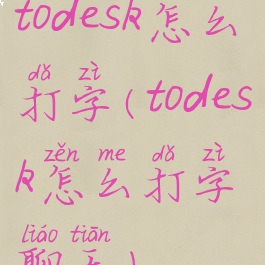 todesk怎么
dǎ zì
打字(todes
zěn me dǎ zì
k怎么打字
liáo tiān
聊天)